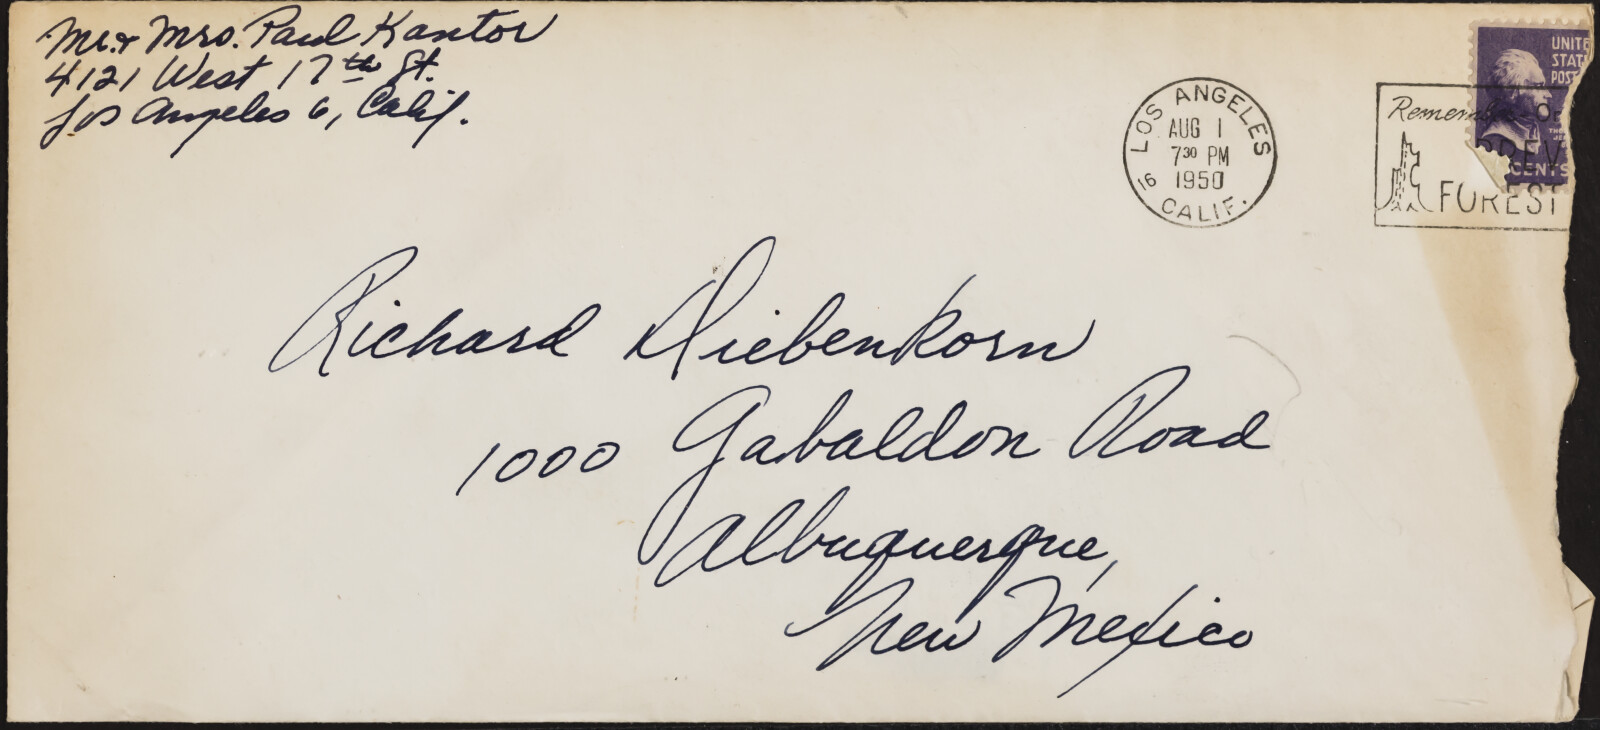 Mr. & Mrs. Paul Kantor
4121 West 17th St.
Los Angeles 6, Calif.
LOS ANGELES
AUG 1
7 30 PM
1950
16
CALIF.
UNITE
STAT
POST
CENTS
PREV
FOREST
Richard Diebenkorn
1000 Gabaldon Road
Albuquerque,
New Mexico